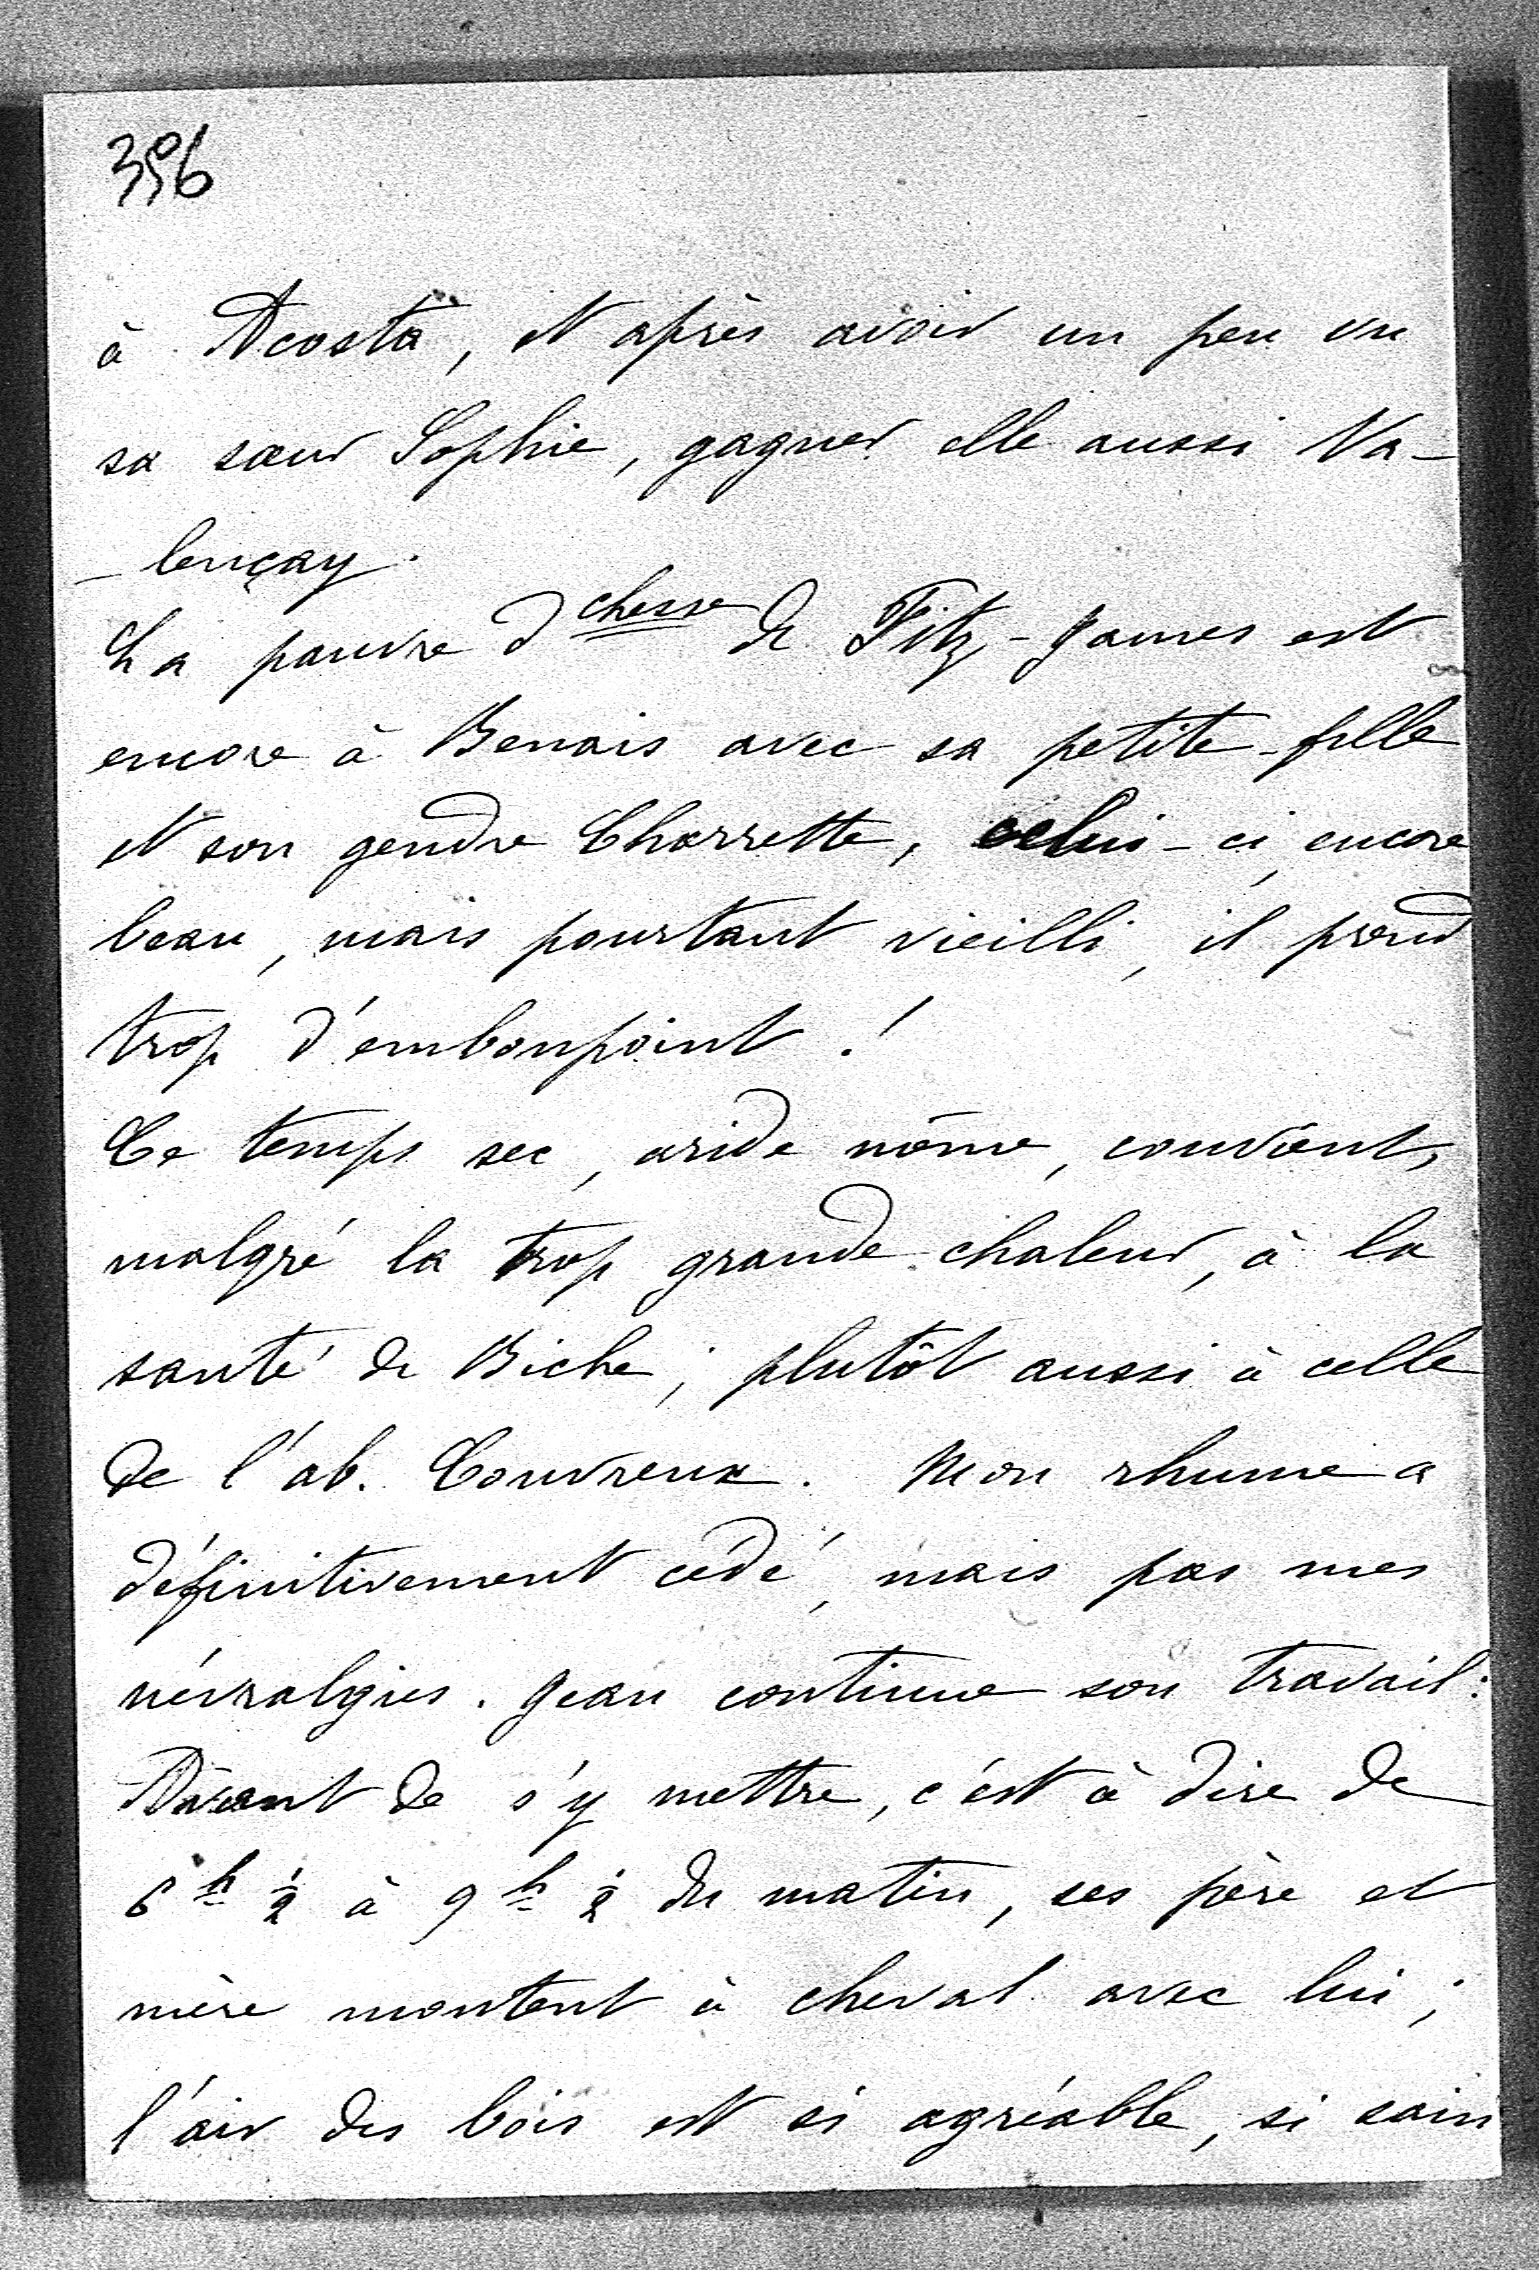 396
à Acosta, et après avoir un peu vu
sa sœur Sophie, gagner elle aussi Va-
-lençay.
La pauvre dchesse de Fitz-James est
encore à Benais avec sa petite-fille
et son gendre Charrette, celui-ci, encore
beau, mais pourtant vieilli, il prend
trop d'embonpoint !
Ce temps sec, aride même, convient,
malgré la trop grande chaleur, à la
santé de Biche ; plutôt aussi à celle
de l'ab. Couvreux. Mon rhume a
définitivement cédé, mais pas mes
névralgies. Jean continue son travail :
Avant de s'y mettre, c'est à dire de
6h ½ à 9h ½ du matin, ses père et
mère montent à cheval avec lui ;
l'air des bois est si agréable, si sain